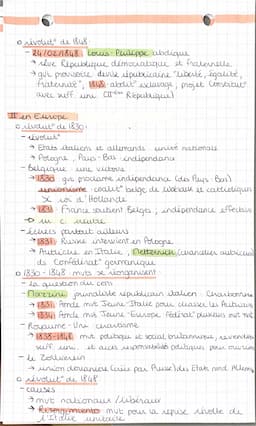 o révolut° de 1848
- 24/02/1848 : Louis-Philippe abdique
→ rêve République démocratique et fraternelle
→ gvt provisoire devise républicaine "liberté, égalité,
fraternité", 1848 abolit° esclavage, projet Constitut°
avec suff. univ. (IIème République)
II en Europe
o révolut° de 1830 :
- révolut°
→ Etats italiens et allemands : unité nationale
→ Pologne, Pays-Bas : indépendance
- Belgique : une victoire
→ 1830 gvt proclame indépendance (des Pays-Bas)
unionisme : coalit° belge de libéraux et catholiques
roi d'Hollande
→ 1831 France soutient Belges, indépendance effective
neutre
- échecs partout ailleurs
→ 1831 Russie intervient en Pologne
→ Autriche en Italie, Metternich (chancelier autrichien)
Confédérat° germanique
o 1830-1848 mvts se réorganisent
- la question du
Mazzini journaliste républicain italien, Charbonnerie
→ 1831 fonde mvt Jeune-Italie pour chasser les Autrichiens
→ 1834 fonde mvt Jeune-Europe
- Royaume-Uni : chartisme
→ 1838-1848 mvt politique et social britannique, revendique
suff. univ. et accès responsabilités politiques pour ouvriers
- le Zollverein
→ union douanière (créée par Prusse) des Etats allem
o révolut° de 1848
- causes
→ mvt nationaux / libéraux
→ Risorgimento mvt pour la
l'Italie unitaire